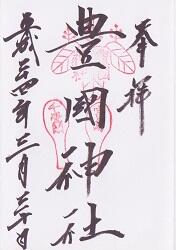 奉拝
豊國神社
平成 四年三月 十日